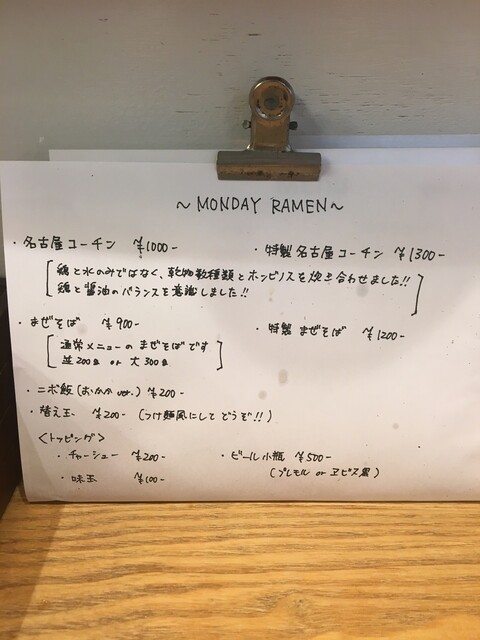 ～MONDAY RAMEN～
・名古屋コーチン ¥1000-
・特製名古屋コーチン ¥1300-
鶏と水のみではなく、乾物数種類とホンビノスを炊き合わせました!!
鶏と醤油のバランスを意識しました!!
・まぜそば ¥900-
・特製まぜそば ¥1200-
通常メニューのまぜそばです
並200g or 大300g
・ニボ飯(おかか ver.) ¥200-
・替え玉 ¥200- (つけ麺風にしてどうぞ!!)
<トッピング>
・チャーシュー ¥200-
・ビール小瓶 ¥500-
(プレモル or ヱビス黒)
・味玉 ¥100-